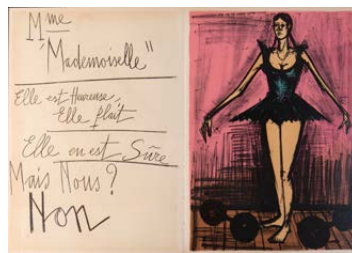 Mme
"Mademoiselle"
Elle est Heureuse,
Elle plaît
Elle en est Sûre
Mais Nous?
Non